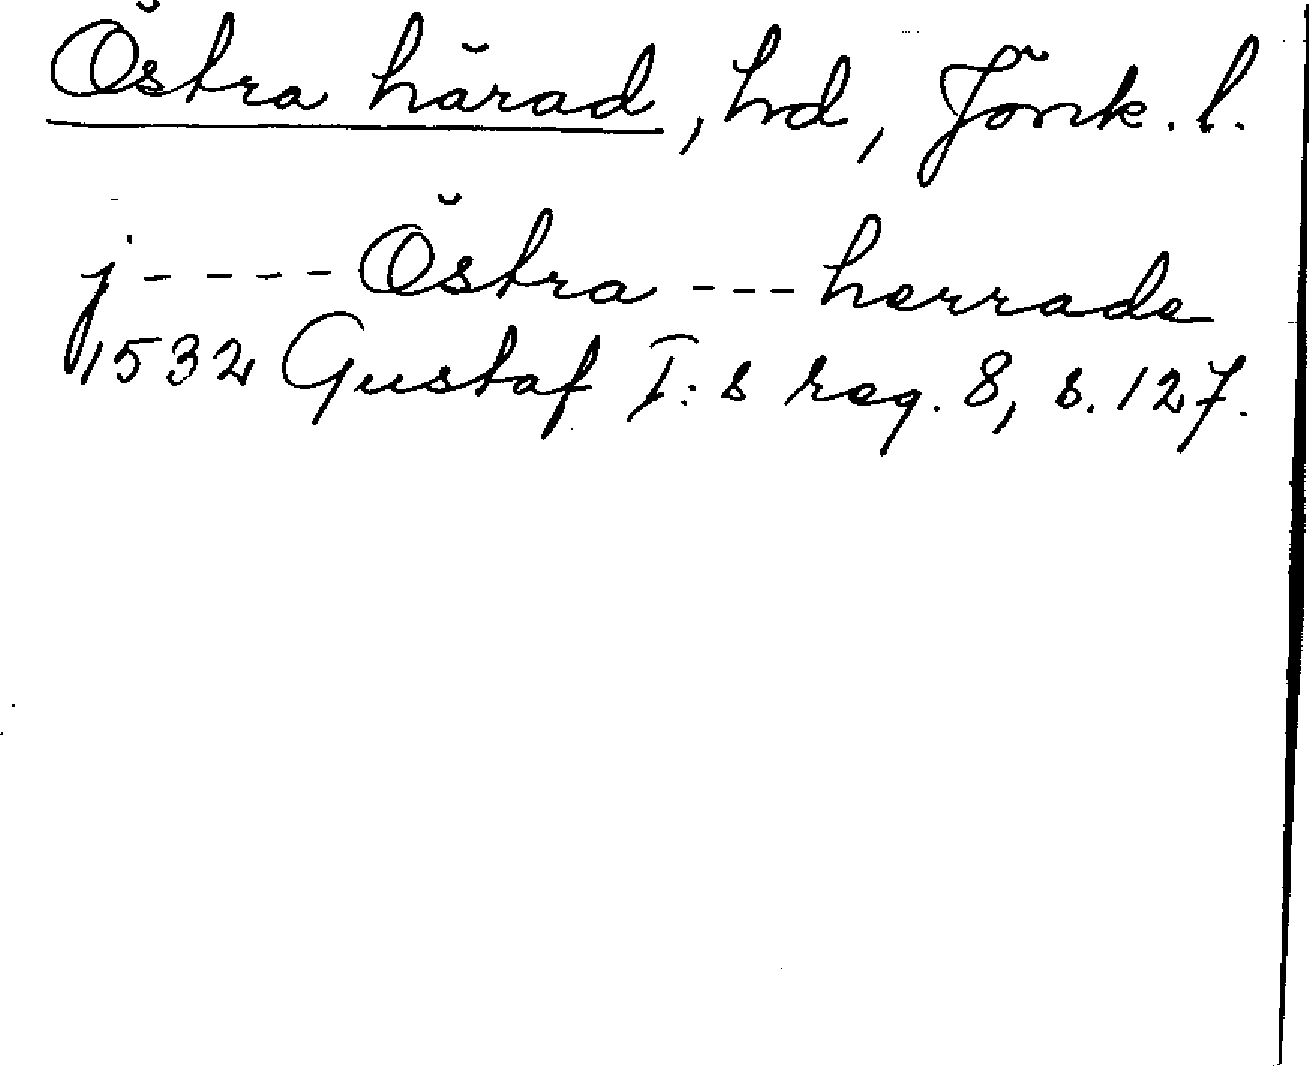 Östra härad, hd, Jönk. l.
j - - - - Östra - - - herrade
1532 Gustaf I:s reg. 8, s. 127.